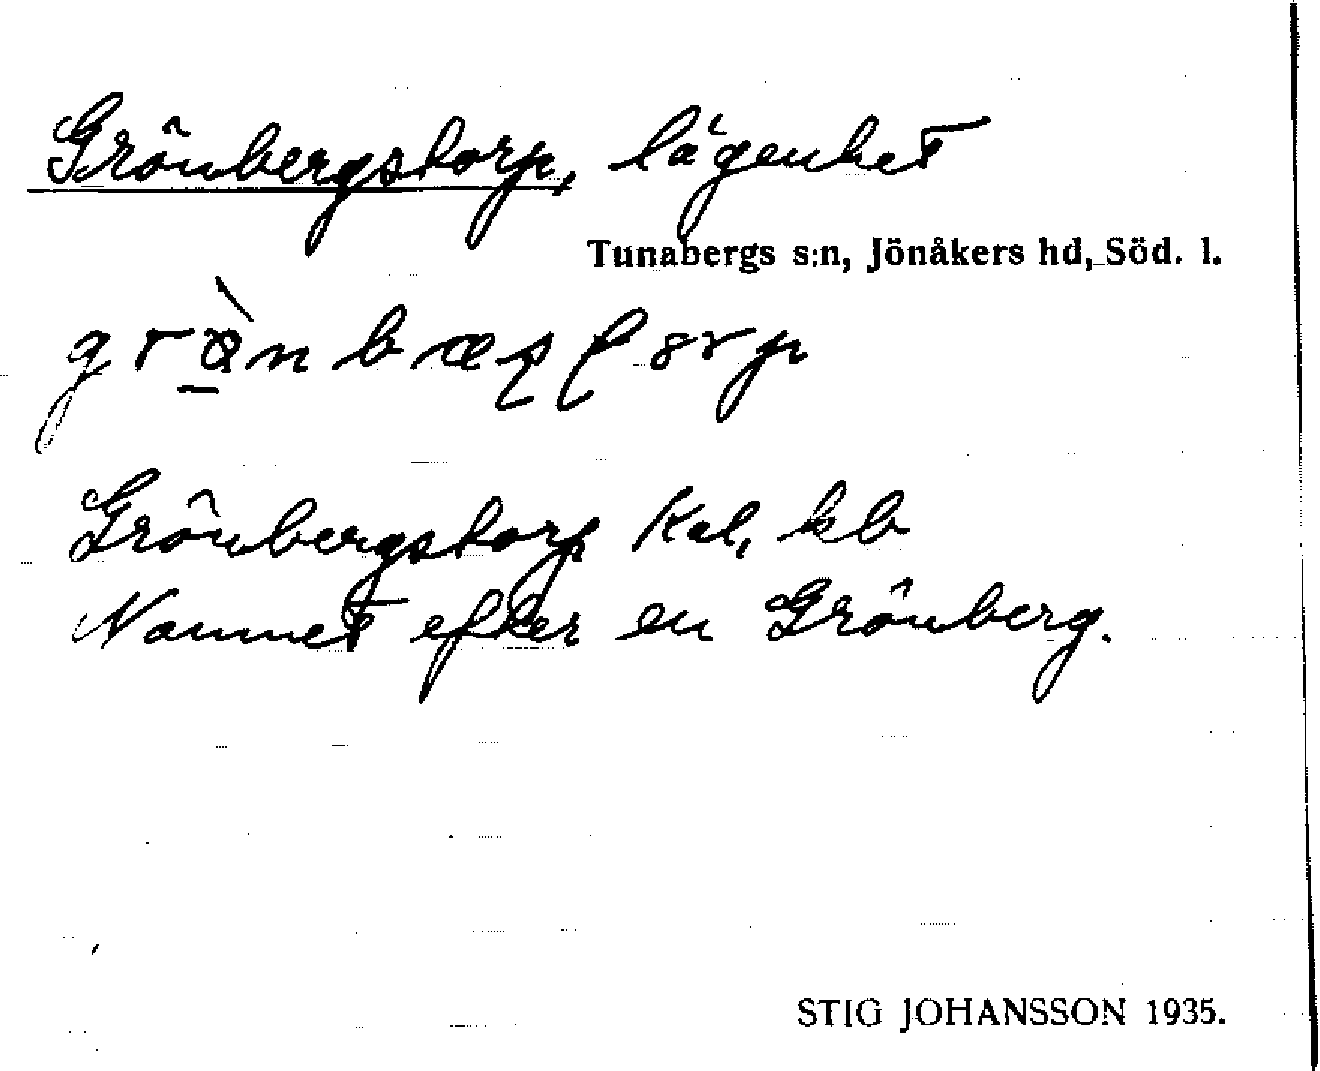 Grönbergstorp, lägenhet
Tunabergs s:n, Jönåkers hd, Söd. l.
Grönbergstorp Kal, kb
Namnet efter en Grönberg.
STIG JOHANSSON 1935.